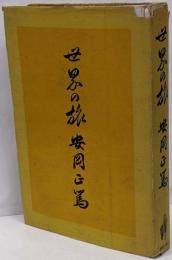 世界の旅 安岡正篤
世界の旅 安岡正篤